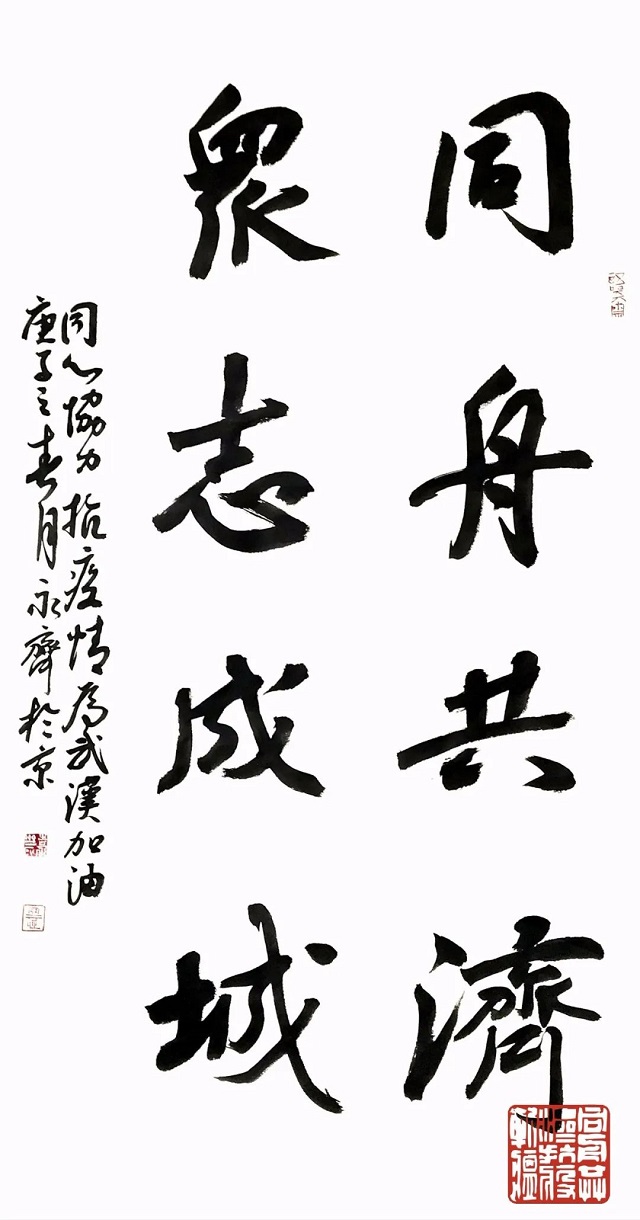 同舟共濟
衆志成城
同心協力抗疫情為武漢加油
庚子之春月永齊於京